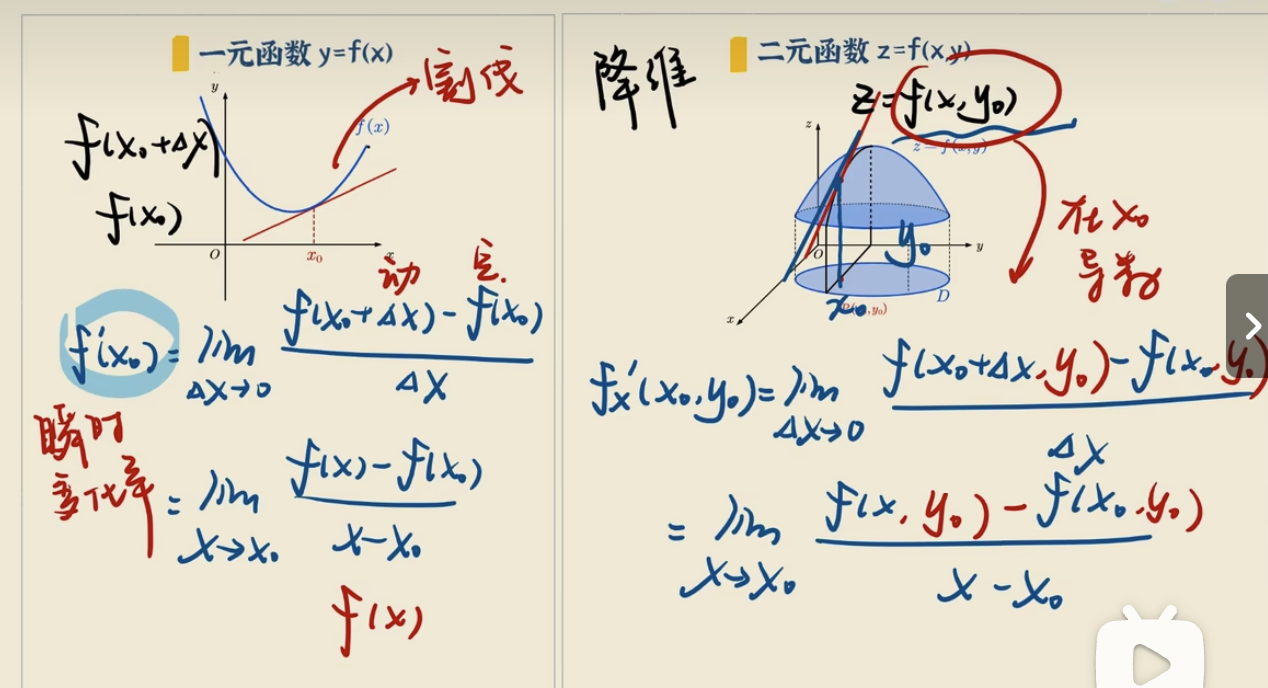 一元函数 y=f(x)
割线
y
f(x)
f(x₀+Δx)
f(x₀)
O
x₀
x
动 定.
f'(x₀) = lim Δx→0 (f(x₀+Δx) - f(x₀)) / Δx
瞬时
变化率
= lim x→x₀ (f(x) - f(x₀)) / (x - x₀)
f(x)
降维
二元函数 z=f(x,y)
z=f(x,y₀)
z
z=f(x,y)
在x₀
导数
y₀
O
y
D
x₀
x
f'ₓ(x₀,y₀) = lim Δx→0 (f(x₀+Δx,y₀) - f(x₀,y₀)) / Δx
= lim x→x₀ (f(x,y₀) - f(x₀,y₀)) / (x - x₀)